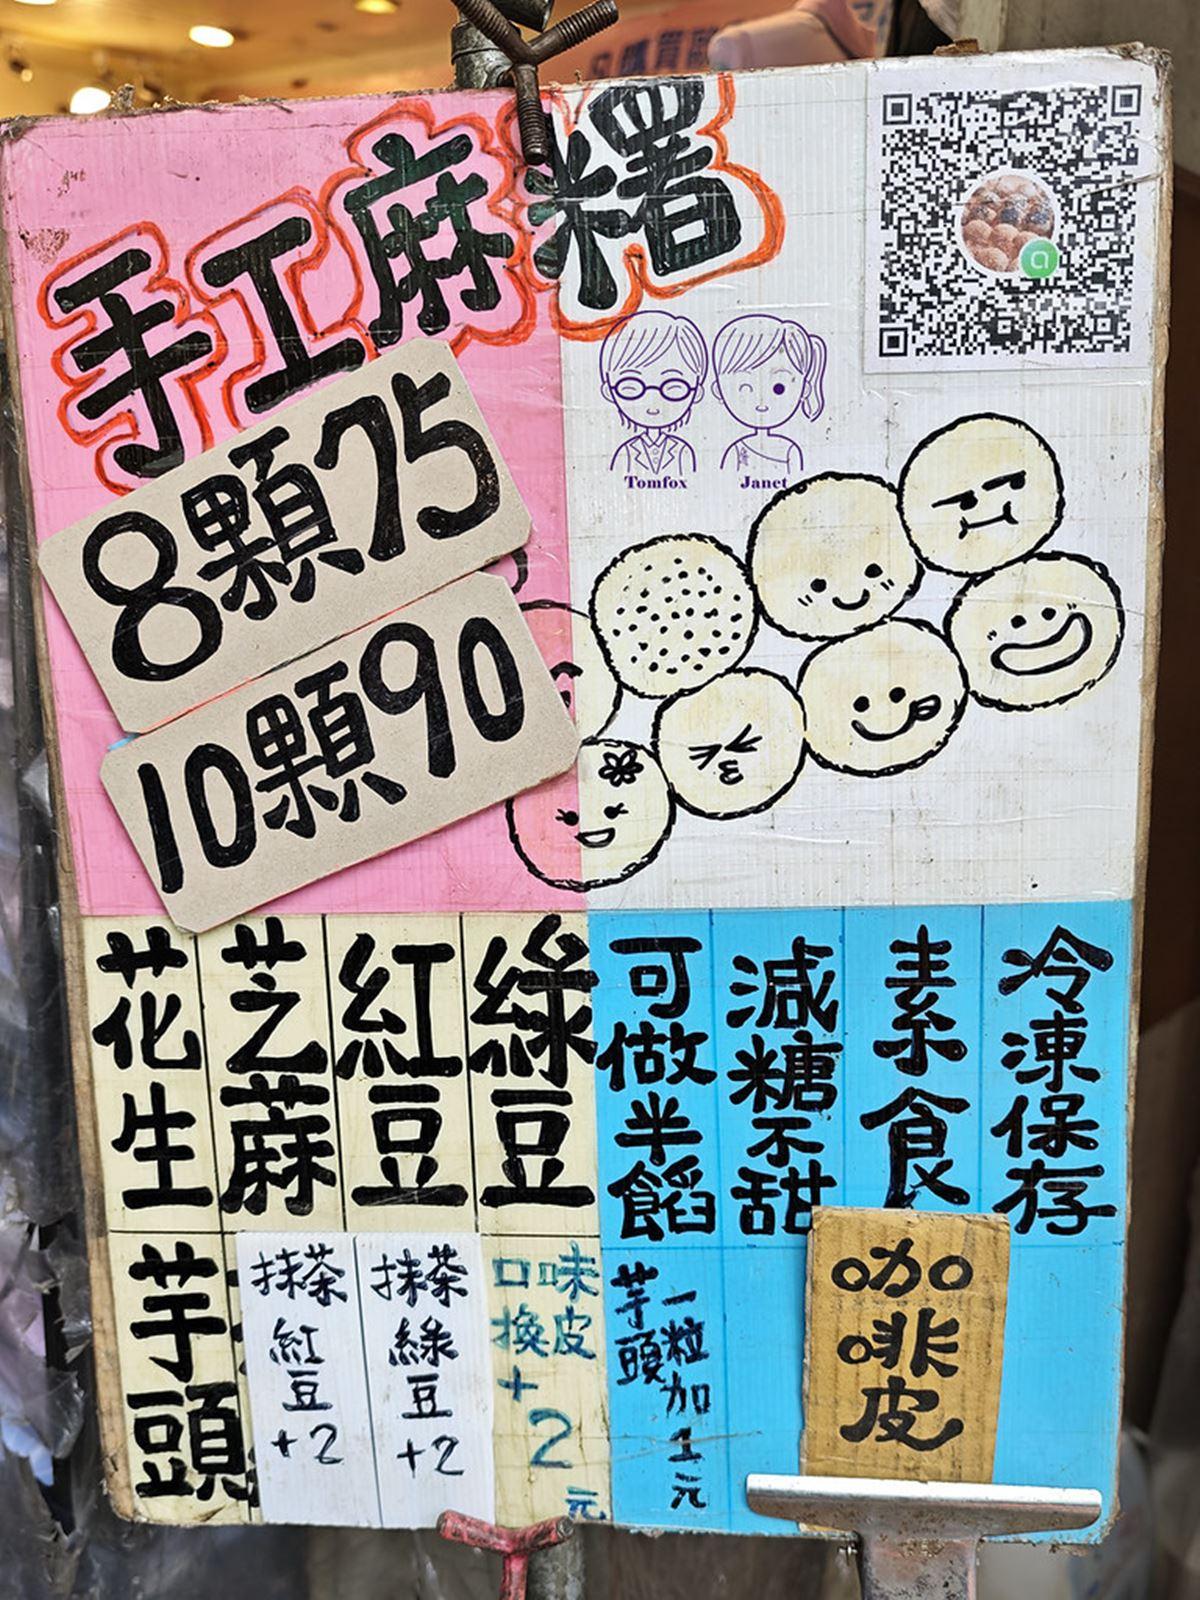 手工麻糬
8顆75
10顆90
Tomfox
Janet
花生
芝蔴
紅豆
綠豆
可做半餡
減糖不甜
素食
冷凍保存
芋頭
抹茶
紅豆
+2
抹茶
綠豆
+2
口味
換皮
+2
元
芋頭
一粒加1元
咖啡皮